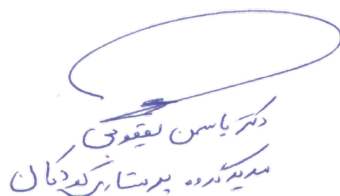 دکتر یاسمن یعقوبی
مدیر گروه پرستاری کودکان